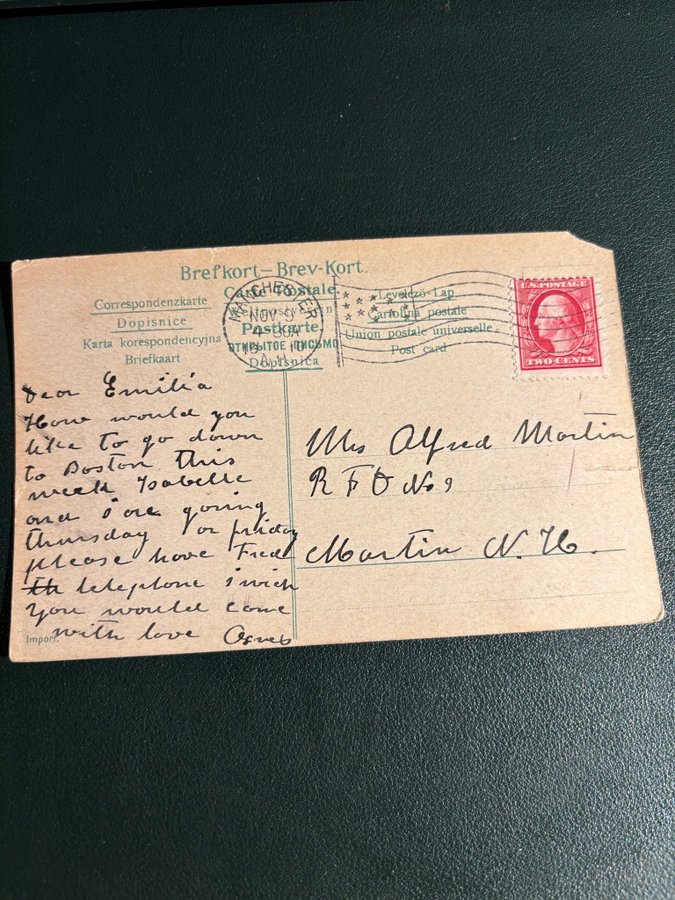 Brefkort — Brev-Kort.
Carte Postale
Correspondenzkarte
Dopisnice
Karta korespondencyjna
Briefkaart
Postkarte
ОТКРЫТОЕ ПИСЬМО
Dopisnica
Levelező-Lap.
Cartolina postale
Union postale universelle.
Post card
MANCHESTER
NOV 9
4-30A
N.H.
U.S. POSTAGE
TWO CENTS
Dear Emilia
How would you
like to go down
to Boston this
week Isabelle
and i are going
thursday or friday
please have Fred
th telephone i wich
you would come
with love Agnes
Mrs Alfred Martin
R F D No 9
Martin N. H.
Import.